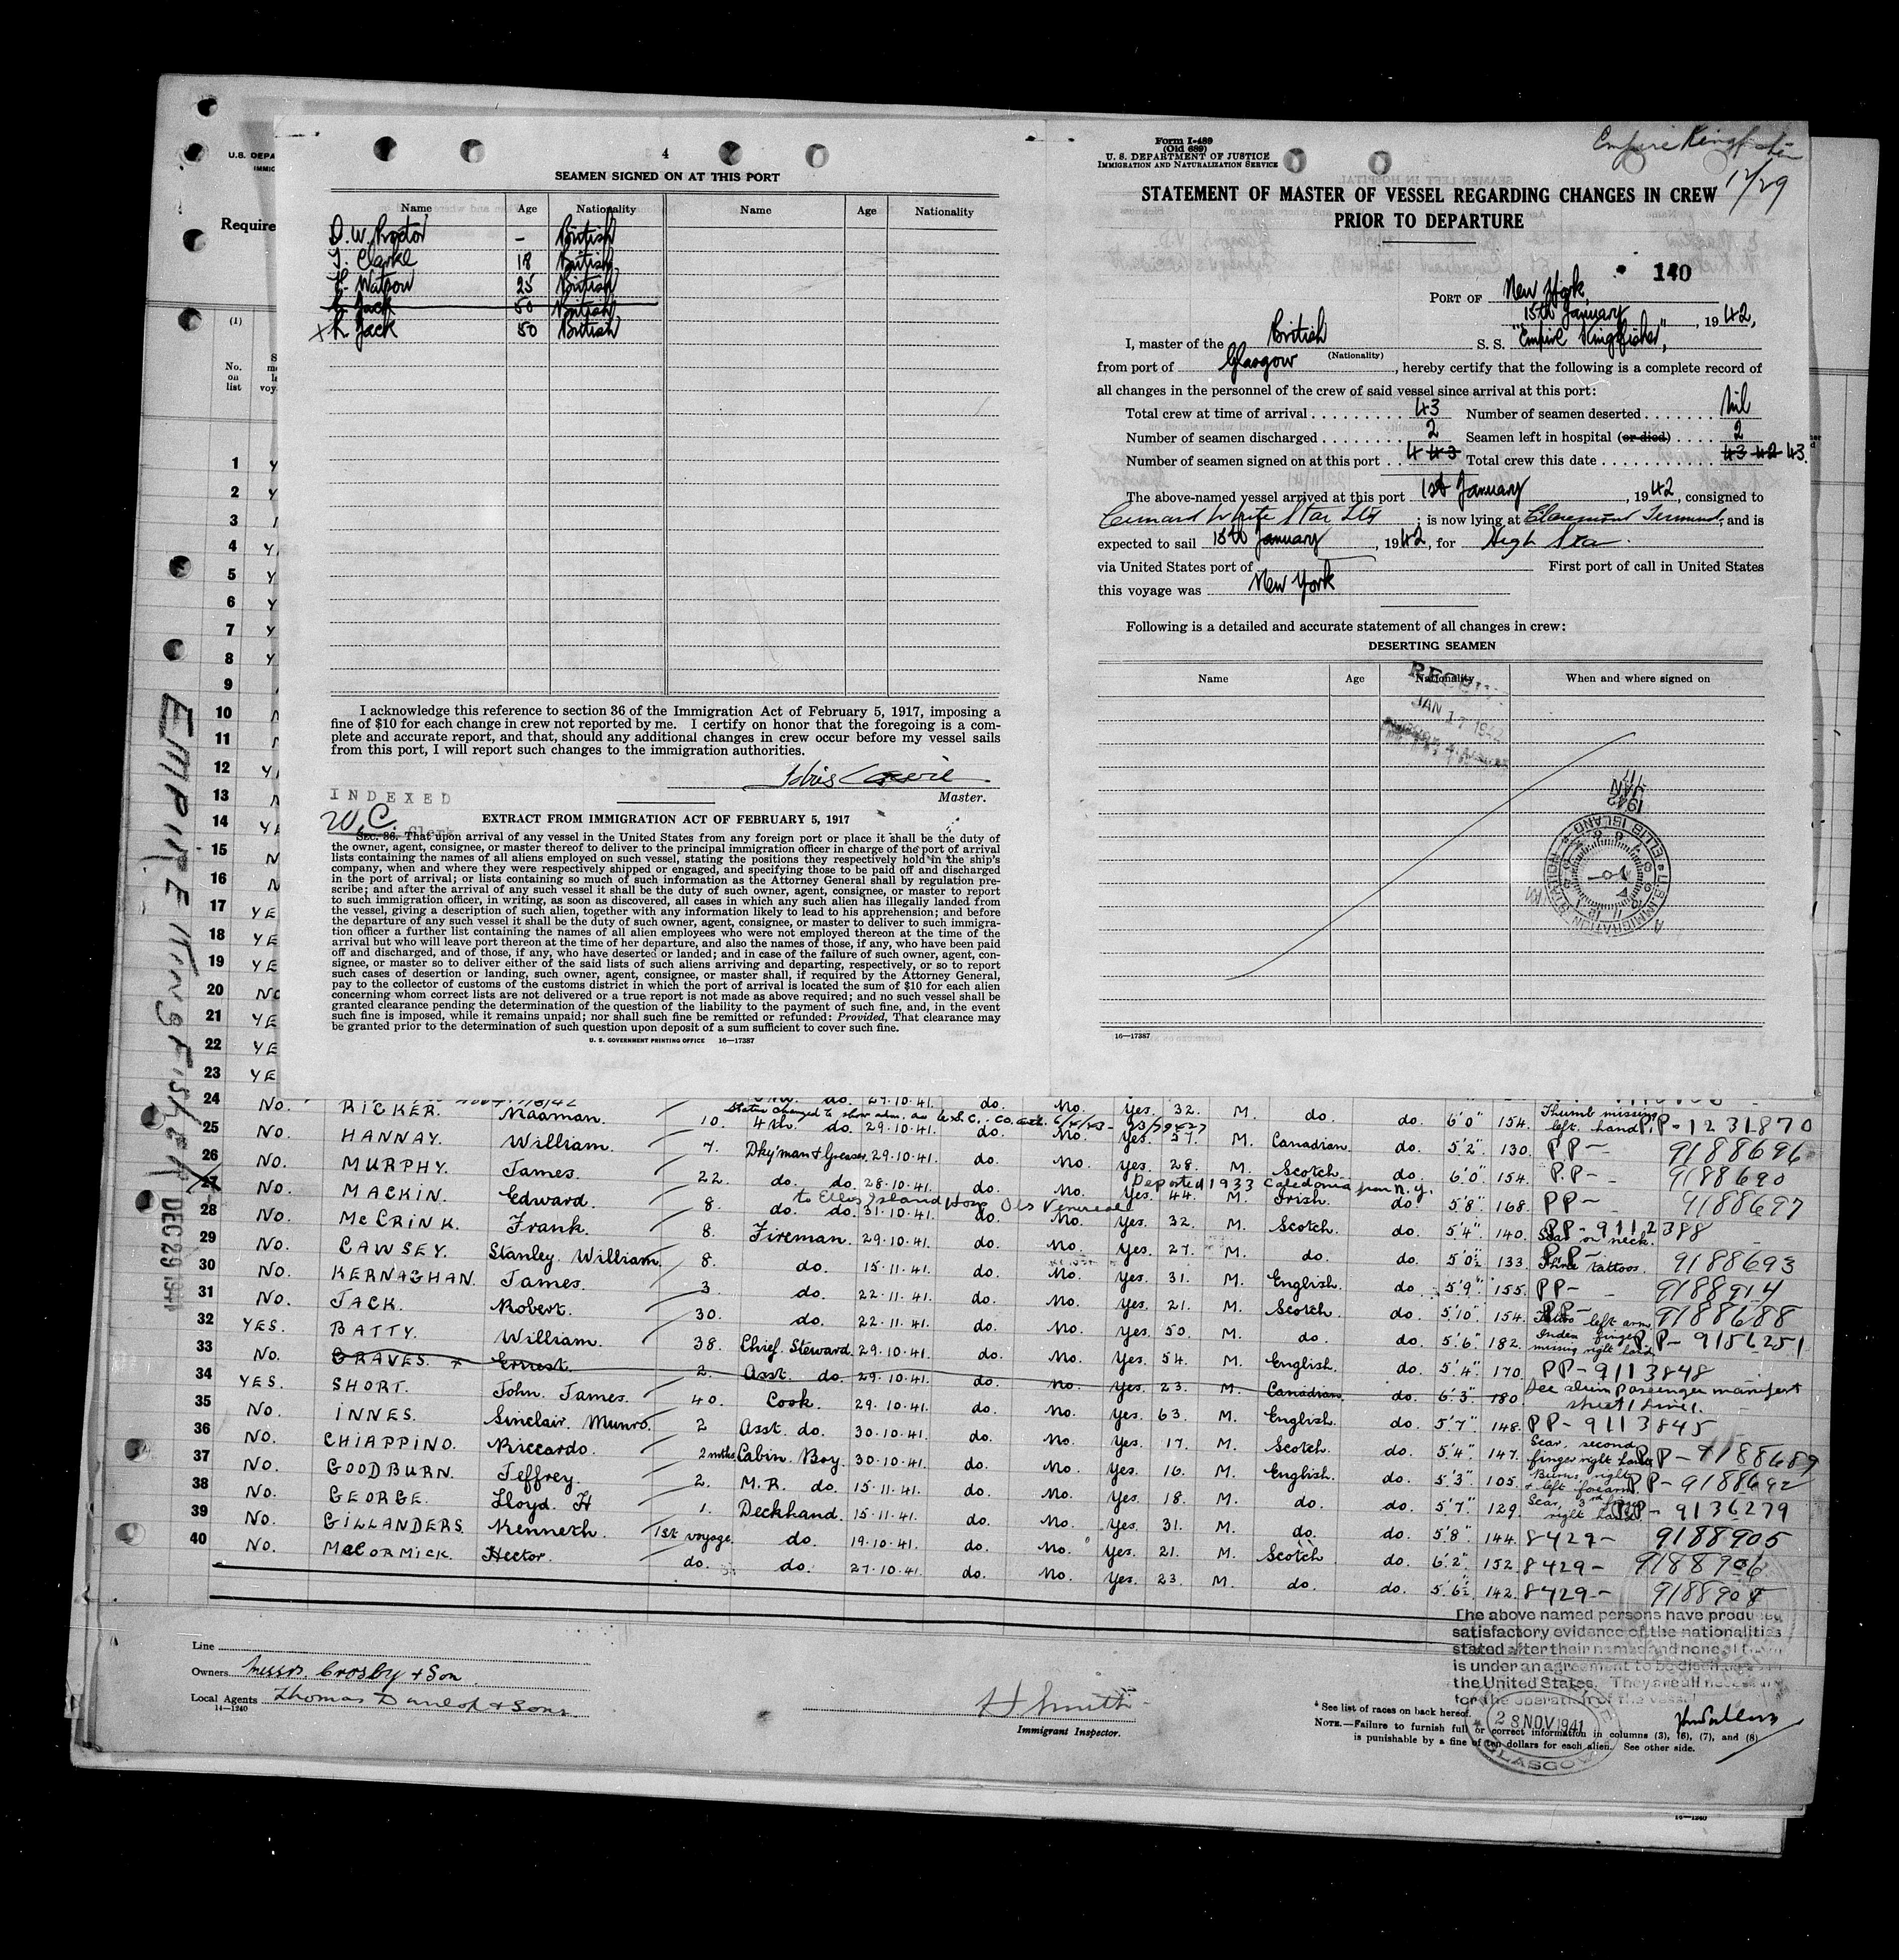 4
SEAMEN SIGNED ON AT THIS PORT
Name Age Nationality Name Age Nationality
D. W. Proctor - British
J. Clarke 18 British
E. Watson 25 British
R. Jack 50 British
x R. Jack 50 British
I acknowledge this reference to section 36 of the Immigration Act of February 5, 1917, imposing a
fine of $10 for each change in crew not reported by me. I certify on honor that the foregoing is a com-
plete and accurate report, and that, should any additional changes in crew occur before my vessel sails
from this port, I will report such changes to the immigration authorities.
Master.
INDEXED
W.C. Clerk
EXTRACT FROM IMMIGRATION ACT OF FEBRUARY 5, 1917
SEC. 36. That upon arrival of any vessel in the United States from any foreign port or place it shall be the duty of
the owner, agent, consignee, or master thereof to deliver to the principal immigration officer in charge of the port of arrival
lists containing the names of all aliens employed on such vessel, stating the positions they respectively hold in the ship's
company, when and where they were respectively shipped or engaged, and specifying those to be paid off and discharged
in the port of arrival; or lists containing so much of such information as the Attorney General shall by regulation pre-
scribe; and after the arrival of any such vessel it shall be the duty of such owner, agent, consignee, or master to report
to such immigration officer, in writing, as soon as discovered, all cases in which any such alien has illegally landed from
the vessel, giving a description of such alien, together with any information likely to lead to his apprehension; and before
the departure of any such vessel it shall be the duty of such owner, agent, consignee, or master to deliver to such immigra-
tion officer a further list containing the names of all alien employees who were not employed thereon at the time of the
arrival but who will leave port thereon at the time of her departure, and also the names of those, if any, who have been paid
off and discharged, and of those, if any, who have deserted or landed; and in case of the failure of such owner, agent, con-
signee, or master so to deliver either of the said lists of such aliens arriving and departing, respectively, or so to report
such cases of desertion or landing, such owner, agent, consignee, or master shall, if required by the Attorney General,
pay to the collector of customs of the customs district in which the port of arrival is located the sum of $10 for each alien
concerning whom correct lists are not delivered or a true report is not made as above required; and no such vessel shall be
granted clearance pending the determination of the question of the liability to the payment of such fine, and, in the event
such fine is imposed, while it remains unpaid; nor shall such fine be remitted or refunded: Provided, That clearance may
be granted prior to the determination of such question upon deposit of a sum sufficient to cover such fine.
U. S. GOVERNMENT PRINTING OFFICE 16—17387
Form I-489
(Old 689)
U. S. DEPARTMENT OF JUSTICE
IMMIGRATION AND NATURALIZATION SERVICE
Empire Kingfisher
12/29
STATEMENT OF MASTER OF VESSEL REGARDING CHANGES IN CREW
PRIOR TO DEPARTURE
140
PORT OF New York,
15th January, 1942,
I, master of the British S. S. "Empire Kingfisher",
(Nationality)
from port of Glasgow, hereby certify that the following is a complete record of
all changes in the personnel of the crew of said vessel since arrival at this port:
Total crew at time of arrival 43 Number of seamen deserted Nil
Number of seamen discharged 2 Seamen left in hospital (or died) 2
Number of seamen signed on at this port 4 43 Total crew this date 43 42 43.
The above-named vessel arrived at this port 1st January, 1942, consigned to
Cunard White Star Ltd; is now lying at Claremont Terminal, and is
expected to sail 15th January, 1942, for High Sea.
via United States port of First port of call in United States
this voyage was New York
Following is a detailed and accurate statement of all changes in crew:
DESERTING SEAMEN
Name Age Nationality When and where signed on
JAN 17 1942
1942 JAN 17
U.S. IMMIGRATION STATION ELLIS ISLAND
16—17387
U.S. DEPA
IMMIC
Require
(1)
No.
on
list
EMPIRE KINGFISHER
DEC 29 1941
1 Y
2 Y
3
4 Y
5 Y
6 Y
7 Y
8 Y
9
10
11
12 Y
13
14 YE
15 N
16 N
17 YE
18 YE
19 YE
20 NO
21 YE
22 YE
23 YE
24 No. RICKER. Naaman. 10. 4th. do. 29.10.41. do. No. Yes. 32. M. do. do. 6'0" 154. Thumb missing left hand P.P-1231870
25 No. HANNAY. William. 7. Dky'man & Greaser. 29.10.41. do. No. Yes. 57. M. Canadian. do. 5'2" 130. P.P- 9188696
26 No. MURPHY. James. 22. do. do. 28.10.41. do. No. Yes. 28. M. Scotch. do. 6'0" 154. P.P- 9188690
Deported 1933 Caledonia from N.Y.
27 No. MACKIN. Edward. 8. do. do. 31.10.41. do. No. Yes. 44. M. Irish. do. 5'8" 168. PP- 9188697
28 No. McCRINK. Frank. 8. Fireman. 29.10.41. do. No. Yes. 32. M. Scotch. do. 5'4" 140. Scar on neck. PP-9112388
29 No. CAWSEY. Stanley William. 8. do. 15.11.41. do. No. Yes. 27. M. do. do. 5'0½ 133. tattoos. PP- 9188693
30 No. KERNAGHAN. James. 3. do. 22.11.41. do. No. Yes. 31. M. English. do. 5'9" 155. PP- 9188914
31 No. JACK. Robert. 30. do. 22.11.41. do. No. Yes. 21. M. Scotch. do. 5'10" 154. left arm PP- 9188688
32 YES. BATTY. William. 38. Chief. Steward. 29.10.41. do. No. Yes. 50. M. do. do. 5'6" 182. Index finger missing right hand PP-9156251
33 No. GRAVES. x Ernest. 2. Asst. do. 29.10.41. do. No. Yes. 54. M. English. do. 5'4" 170. PP-9113848
34 YES. SHORT. John. James. 40. Cook. 29.10.41. do. No. Yes. 23. M. Canadian. do. 6'3" 180 See alien passenger manifest sheet 1 line 1.
35 No. INNES. Sinclair. Munro. 2 Asst. do. 30.10.41. do. No. Yes. 63. M. English. do. 5'7" 148. PP-9113845
36 No. CHIAPPINO. Riccardo. 2 mths. Cabin. Boy. 30.10.41. do. No. Yes. 17. M. Scotch. do. 5'4" 147. Scar, second finger right hand PP-9188689
37 No. GOODBURN. Jeffrey. 2. M.R. do. 15.11.41. do. No. Yes. 16. M. English. do. 5'3" 105. Burns, right & left forearm PP-9188692
38 No. GEORGE. Lloyd. H 1. Deckhand. 15.11.41. do. No. Yes. 18. M. do. do. 5'7" 129. Scar, 3rd finger right hand PP-9136279
39 No. GILLANDERS. Kenneth. 1st voyage. do. 19.10.41. do. No. Yes. 31. M. do. do. 5'8" 144. 8429- 9188905
40 No. McCORMICK. Hector. do. do. 27.10.41. do. No. Yes. 21. M. Scotch do. 6'2" 152. 8429- 9188906
Yes. 23. M. do. do. 5'6½ 142. 8429- 9188908
The above named persons have produced
satisfactory evidence of the nationalities
stated after their names and none of them
is under an agreement to be discharged in
the United States. They are all necessary
for the operation of the vessel
Line
Owners Messrs. Crosby & Son
Local Agents Thomas Dunlop & Sons.
14—1240
H Smith
Immigrant Inspector.
* See list of races on back hereof.
NOTE.—Failure to furnish full or correct information in columns (3), (6), (7), and (8)
is punishable by a fine of ten dollars for each alien. See other side.
28 NOV 1941
GLASGOW
16—1240